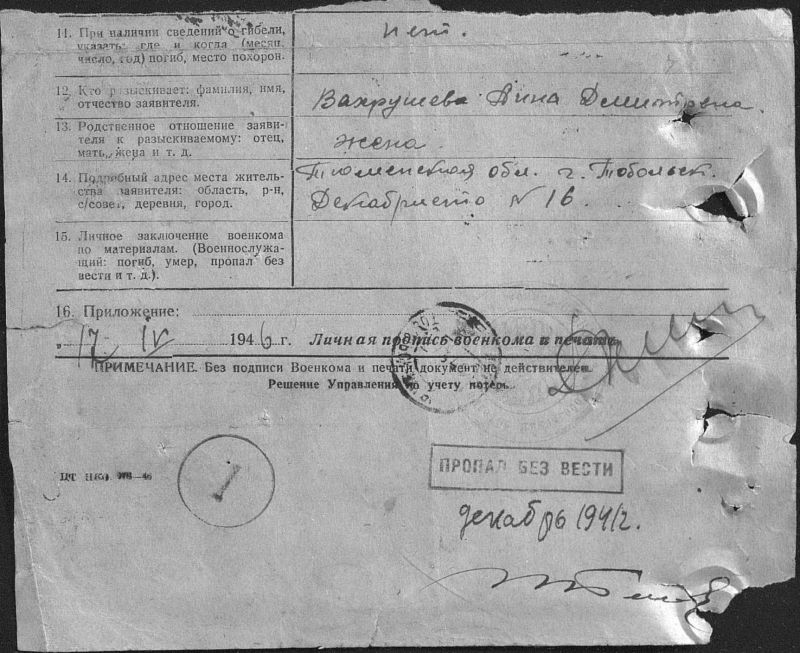 11. При наличии сведений о гибели,
указать: где и когда (месяц,
число, год) погиб, место похорон.
нет.
12. Кто разыскивает: фамилия, имя,
отчество заявителя.
Вахрушева Анна Дмитревна
13. Родственное отношение заяви-
теля к разыскиваемому: отец,
мать, жена и т. д.
жена.
14. Подробный адрес места житель-
ства заявителя: область, р-н,
с/совет, деревня, город.
Тюменская обл. г. Тобольск.
Декабристо № 16.
15. Личное заключение военкома
по материалам. (Военнослужа-
щий: погиб, умер, пропал без
вести и т. д.).
16. Приложение:
„17 IV 1946 г. Личная подпись военкома и печать
ПРИМЕЧАНИЕ. Без подписи Военкома и печати документ не действителен.
Решение Управления по учету потерь
1
ПРОПАЛ БЕЗ ВЕСТИ
декабрь 1941г.